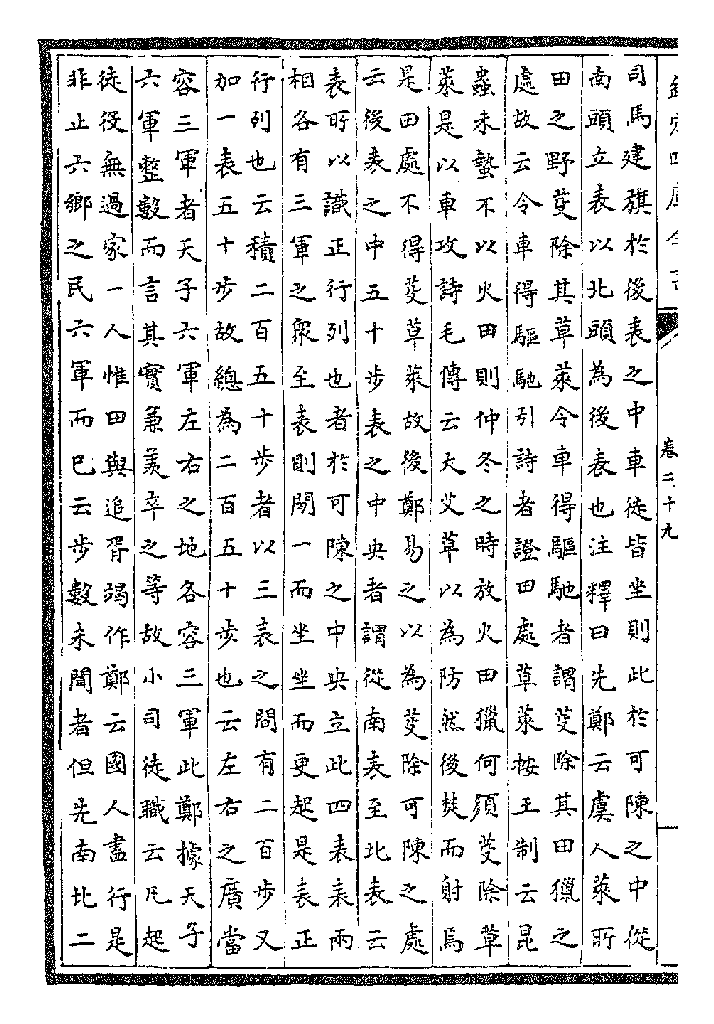 欽定四庫全書
卷二十九
司馬建旗於後表之中車徒皆坐則此於可陳之中從
南頭立表以北頭為後表也注釋曰先鄭云虞人萊所
田之野芟除其草萊令車得驅馳者謂芟除其田獵之
處故云令車得驅馳引詩者證田處草萊按王制云昆
蟲未蟄不以火田則仲冬之時放火田獵何須芟除草
萊是以車攻詩毛傳云大艾草以為防然後焚而射焉
是田處不得芟草萊故後鄭易之以為芟除可陳之處
云後表之中五十步表之中央者謂從南表至北表云
表所以識正行列也者於可陳之中央立此四表表兩
相各有三軍之衆至表則間一而坐坐而更起是表正
行列也云積二百五十步者以三表之間有二百步又
加一表五十步故總為二百五十步也云左右之廣當
容三軍者天子六軍左右之地各容三軍此鄭據天子
六軍整數而言其實兼羨卒之等故小司徒職云凡起
徒役無過家一人惟田與追胥竭作鄭云國人盡行是
非止六鄉之民六軍而已云步數未聞者但先南北二